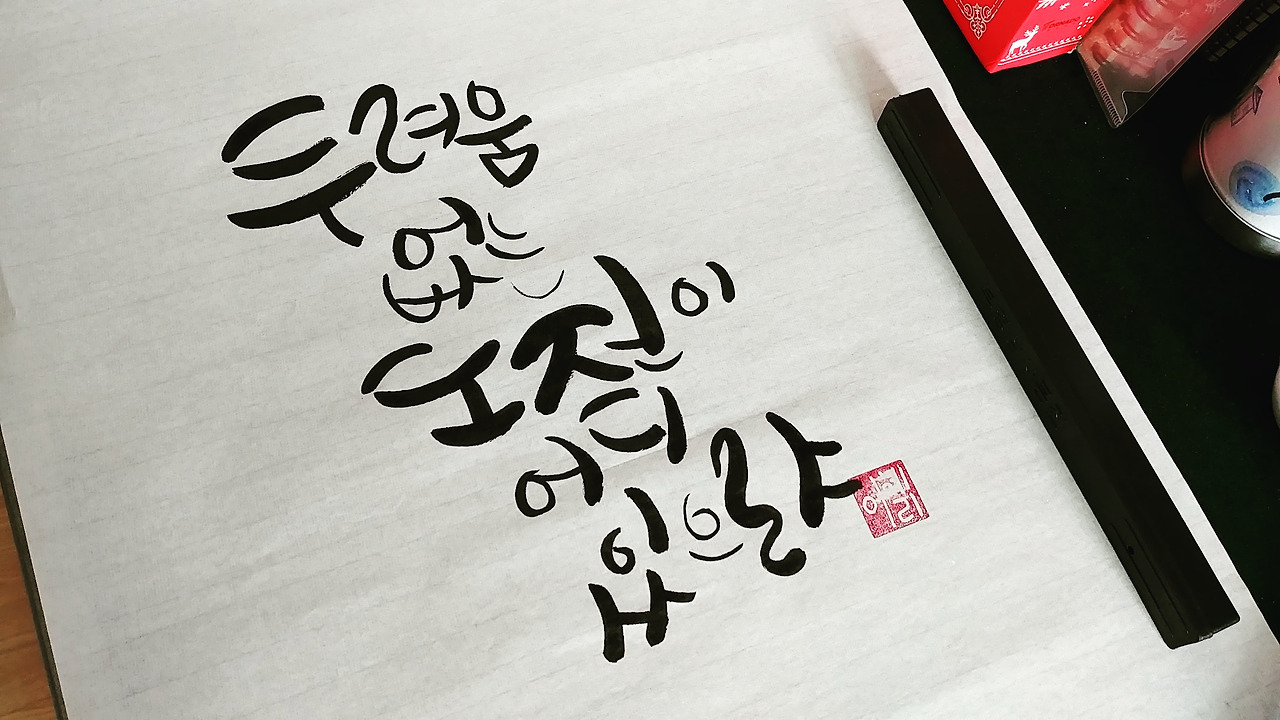 두려움
없는
도전이
어디
있으랴